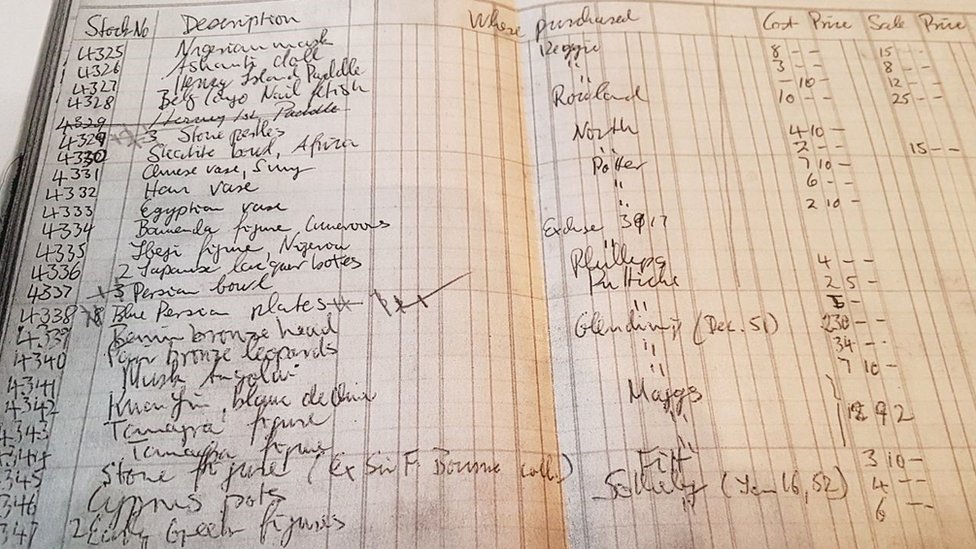 Stock No Description Where purchased Cost Price Sale Price
4325 Nigerian mask Reggie 8 - - 15 - -
4326 Ashanti doll " 3 - - 8 - -
4327 Hervey Island Paddle " - 10 - 12 - -
4328 Nail fetish Rowland 10 - - 25 - -
4329 Hervey Isl Paddle
4329 3 Stone pestles North 4 10 -
4330 Steatite bowl, Africa " 2 - - 15 - -
4331 Chinese vase, Sung Potter 7 10 -
4332 Han vase " 6 - -
4333 Egyptian vase " 2 10 -
4334 Bamenda figure Cameroons
4335 Ibeji figure, Nigeria "
4336 2 Japanese lacquer boxes Phillips 4 - -
4337 3 Persian bowl Puttick 2 5 -
4338 Blue Persian plates "
4339 Benin bronze head Glendining (Dec. 51) 230 - -
4340 Pair Bronze leopards " 34 - -
4341 Mask Angola " 7 10 -
4342 Kuan Yin, blanc de Chine Maggs
4343 Tanagra figure "
4344 Tanagra figure "
4345 Stone figure (Ex Sir F. Bourne coll.) 3 10 -
4346 Cyprus pots 4 - -
4347 2 Early Greek figures " 6 - -